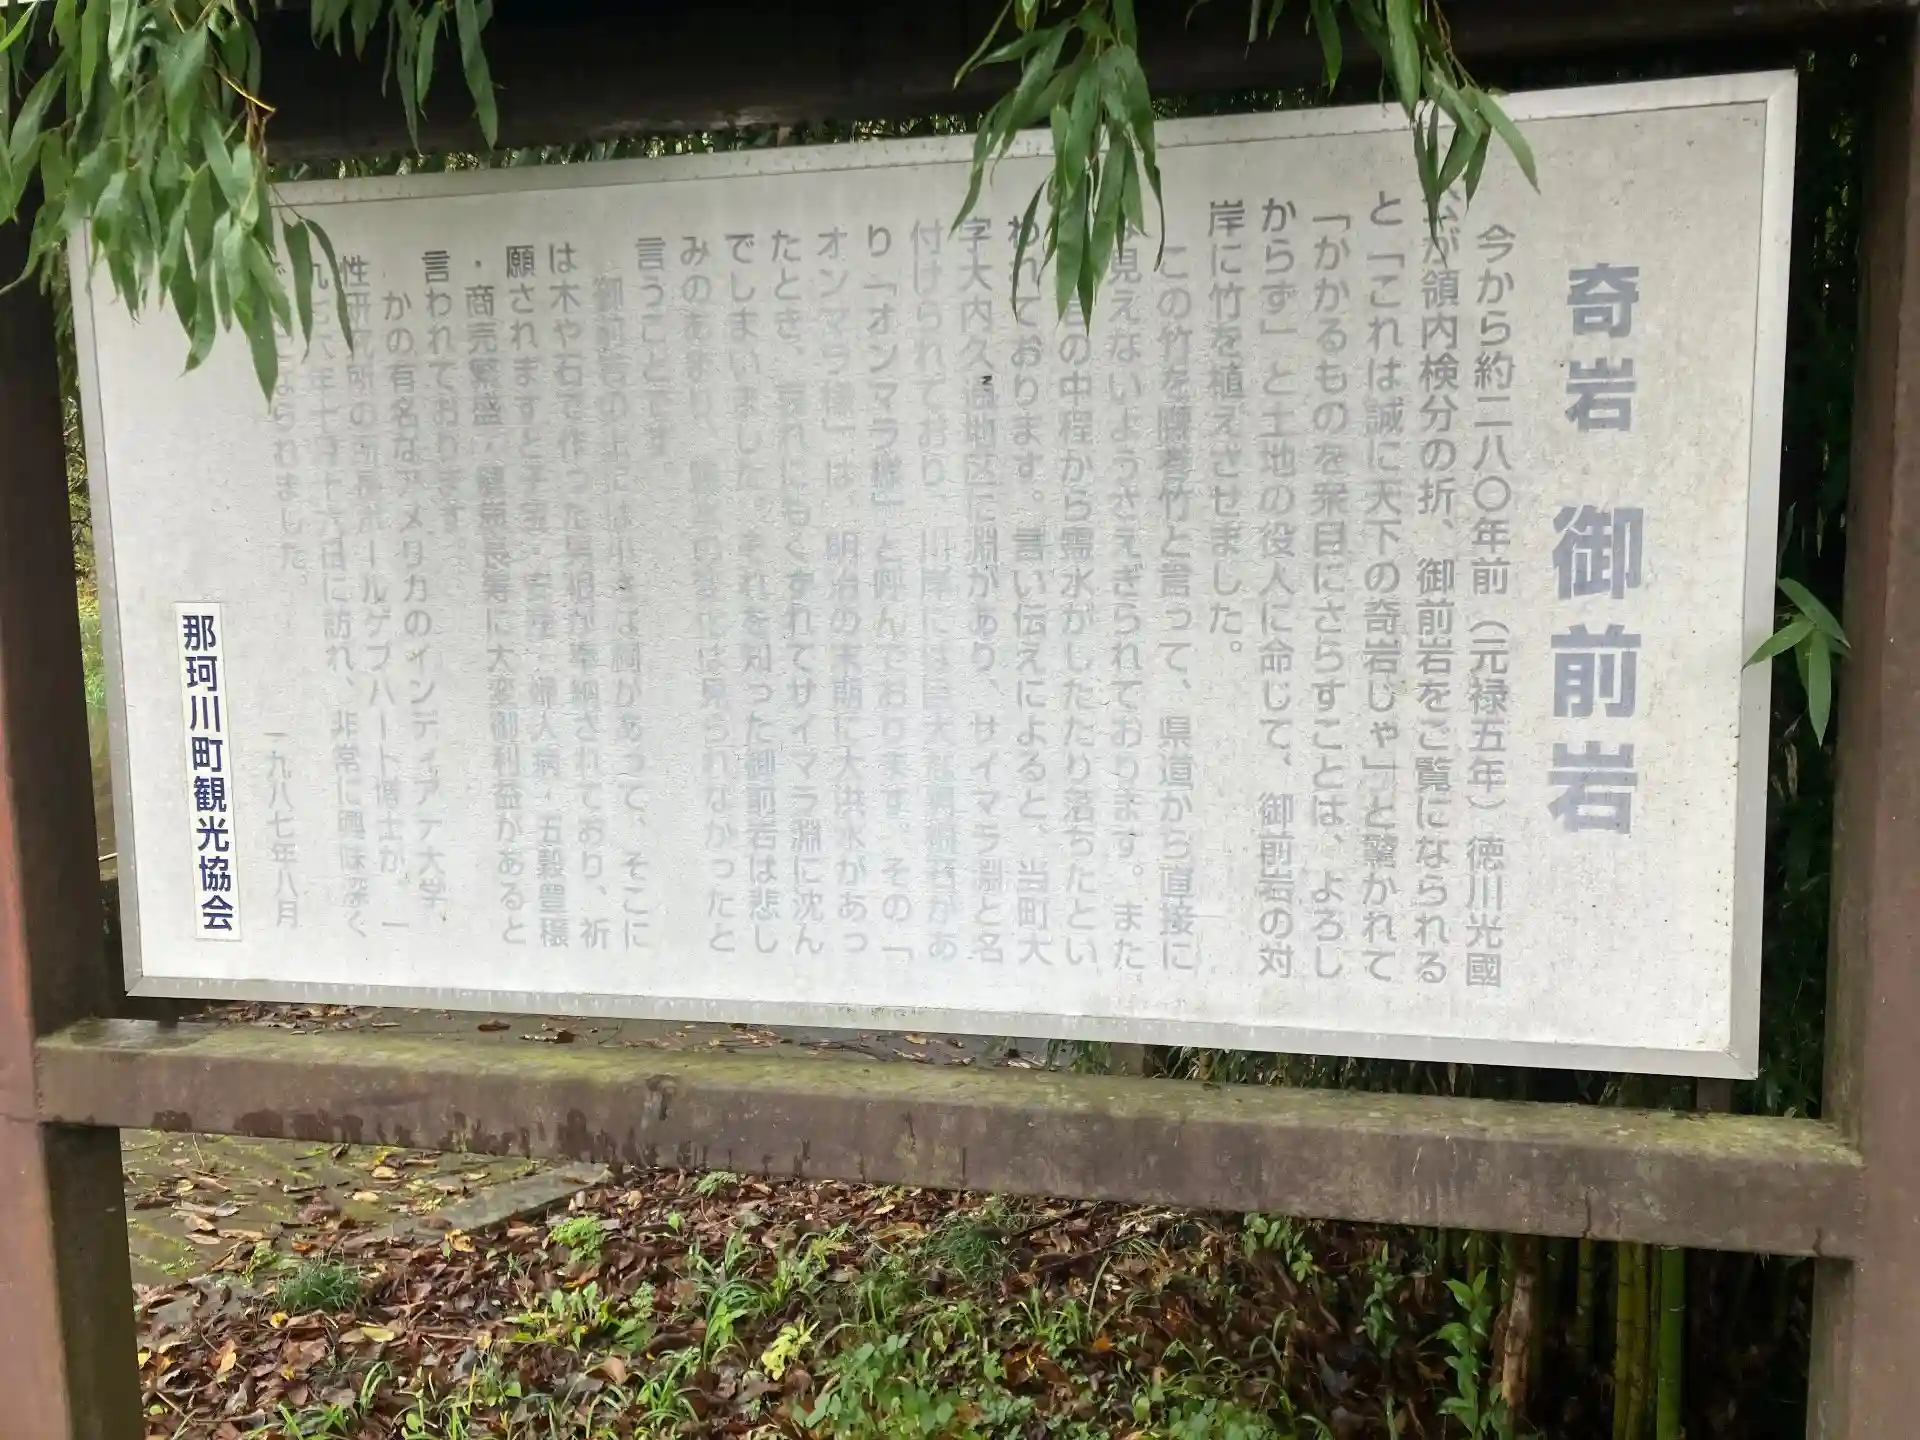 奇岩 御前岩
今から約二八〇年前（元禄五年）徳川光國
が領内検分の折、御前岩をご覧になられる
と「これは誠に天下の奇岩じゃ」と驚かれて
「かかるものを衆目にさらすことは、よろし
からず」と土地の役人に命じて、御前岩の対
岸に竹を植えさせました。
この竹を腰巻竹と言って、県道から直接に
見えないようさえぎられております。また
の中程から霊水がしたたり落ちたとい
われております。言い伝えによると、当町大
字大内久通地区に淵があり、サイマラ淵と名
付けられており、川岸には巨大な男根石があ
り「オンマラ様」と呼んでおります。その「
オンマラ様」は、明治の末期に大洪水があっ
たとき、流れにもくずれてサイマラ淵に沈ん
でしまいました。それを知った御前岩は悲し
みのあまり、見られなかったと
言うことです。
御前岩の上には小さな祠があって、そこに
は木や石で作った男根が奉納されており、祈
願されますと子宝・安産・婦人病・五穀豊穣
・商売繁盛・健康長寿に大変御利益があると
言われております。
かの有名なアメリカのインディアナ大学
性研究所の所長ポールゲブハート博士が、一
九七六年十月十六日に訪れ、非常に興味深く
なられました。
一九八七年八月
那珂川町観光協会